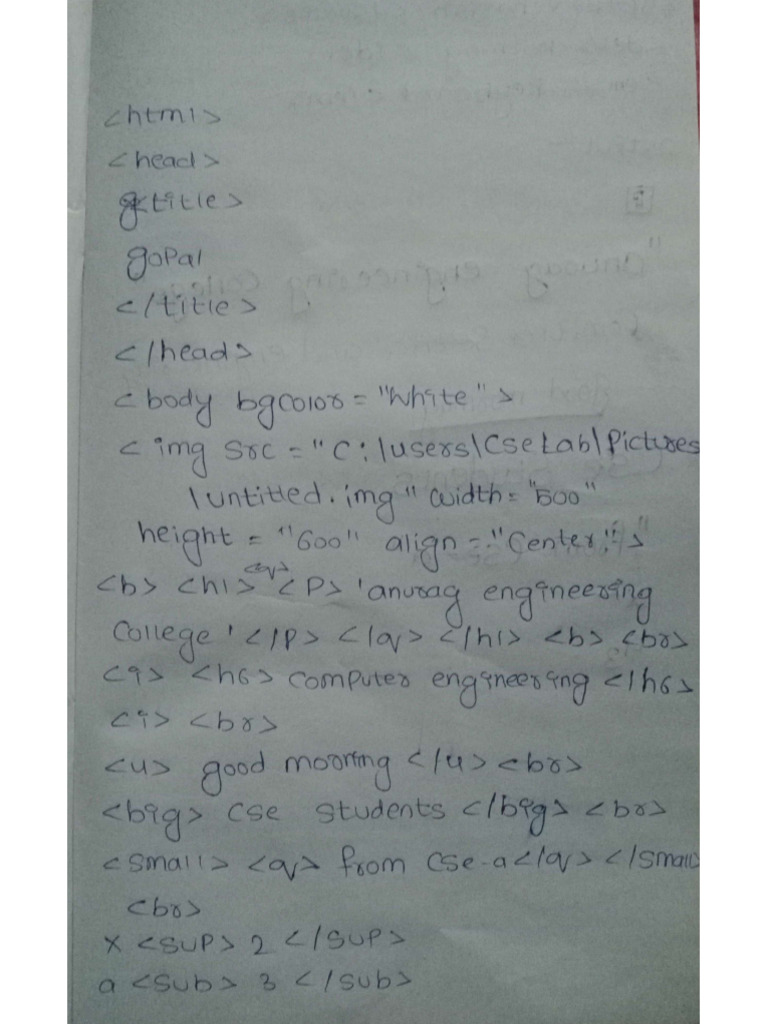 <html>
<head>
<title>
gopal
</title>
</head>
<body bgcolor = "white">
<img src = "C:/users\Cse Lab\Pictures
\untitled.img" width= "500"
height = "600" align = "Center">
<b> <h1> <q> <P> 'anurag engineering
College' </P> </q> </h1> <b> <br>
<i> <h6> computer engineering </h6>
<i> <br>
<u> good mooring </u> <br>
<big> cse students </big> <br>
<small> <q> from cse-a</q> </small
<br>
x <sup> 2 </sup>
a <sub> 3 </sub>